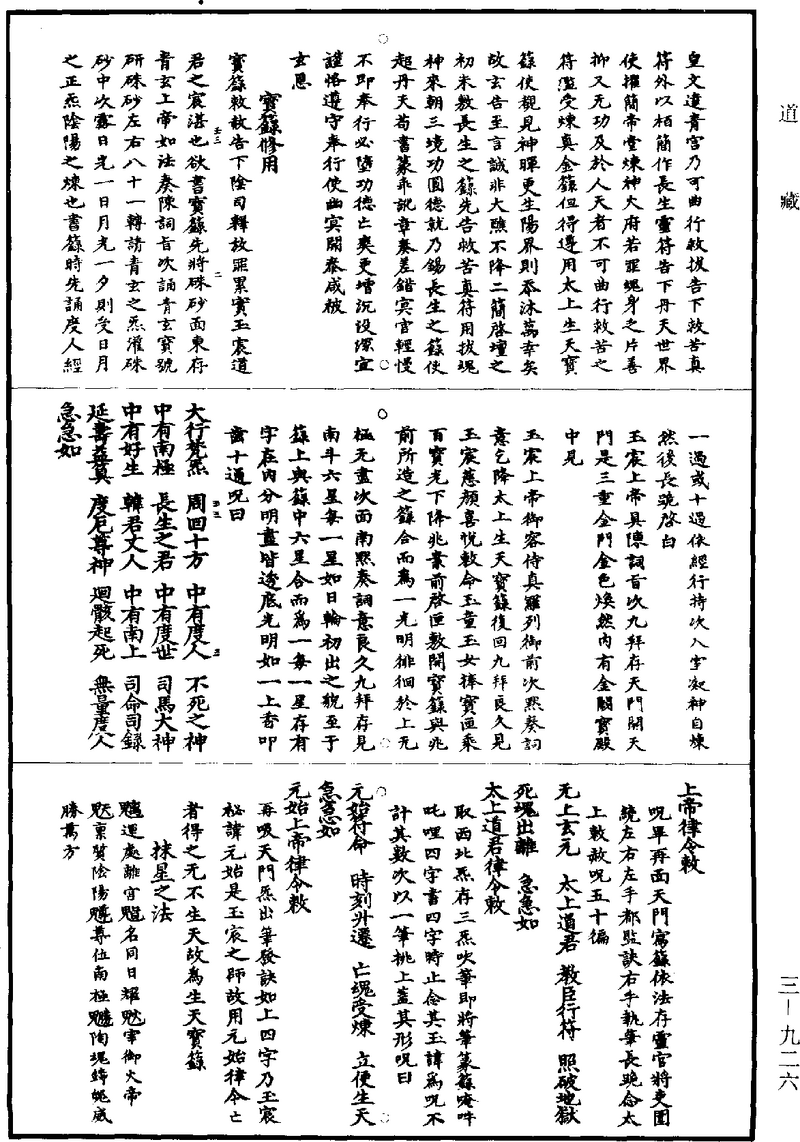 道藏
三-九二六
皇文遣青宮乃可曲行敕拔告下敕苦真
符外以栢簡作長生靈符告下丹天世界
使擢簡帝堂煉神大府若罪魂身之片善
抑又无功及於人天者不可曲行敕苦之
符濫受煉真金籙但得遵用太上生天寶
籙使覩見神暉更生陽界則忝沐萬幸矣
故玄告至言誠非大醮不降二簡啓壇之
初未教長生之籙先告敕苦真符用拔魂
神來朝三境功圓德就乃錫長生之籙使
超丹天苟書篆乖訛章奏差錯冥官輕慢
不即奉行必墮功德亡爽更增沉設深宜
謹恪遵守奉行使幽冥開泰咸被
玄恩
寶籙修用
寶籙敕赦告下陰司釋放罪累實玉宸道
君之宸湛也欲書寶籙先將硃砂面東存
青玄上帝如法奏陳詞旨次誦青玄寶號
研硃砂左右八十一轉請青玄之炁灌硃
砂中次露日光一日月光一夕則受日月
之正炁陰陽之煉也書籙時先誦度人經
一過或十過依經行持次入室凝神自煉
然後長跪啓白
玉宸上帝具陳詞旨次九拜存天門開天
門是三重金門金色煥然內有金闕寶殿
中見
玉宸上帝御容侍真羅列御前次黙奏詞
意乞降太上生天寶籙復回九拜良久見
玉宸慈顏喜悅敕命玉童玉女捧寶匣乘
百寶光下降兆案前啓匣敷開寶籙與兆
前所造之籙合而爲一光明徘徊於上无
極无盡次面南黙奏詞意良久九拜存見
南斗六星每一星如日輪初出之貌至于
籙上與籙中六星合而爲一每一星存有
字在內分明畫皆透底光明如一上香叩
齒十通呪曰
大行梵炁　周回十方　中有度人　不死之神
中有南極　長生之君　中有度世　司馬大神
中有好生　韓君丈人　中有南上　司命司錄
延壽益算　度厄尊神　迴骸起死　無量度人
急急如
上帝律令敕
呪畢再面天門寫籙依法存靈官將吏圍
繞左右左手都監訣右手執筆長跪念太
上敕赦呪五十徧
无上玄元　太上道君　敎臣行符　照破地獄
死魂出離　急急如
太上道君律令敕
取西北炁存三炁吹筆即將筆篆籙唵吽
吒哩四字書四字時止念其玉諱爲呪不
計其數次以一筆挑上蓋其形呪曰
元始符命　時刻升遷　亡魂受煉　立便生天
急急如
元始上帝律令敕
再吸天門炁出筆發訣如上四字乃玉宸
祕諱元始是玉宸之師故用元始律令亡
者得之无不生天故為生天寶籙
抹星之法
運處離宮名同日耀宰御火帝
稟質陰陽尊位南極陶魂鑄魄威
勝萬方